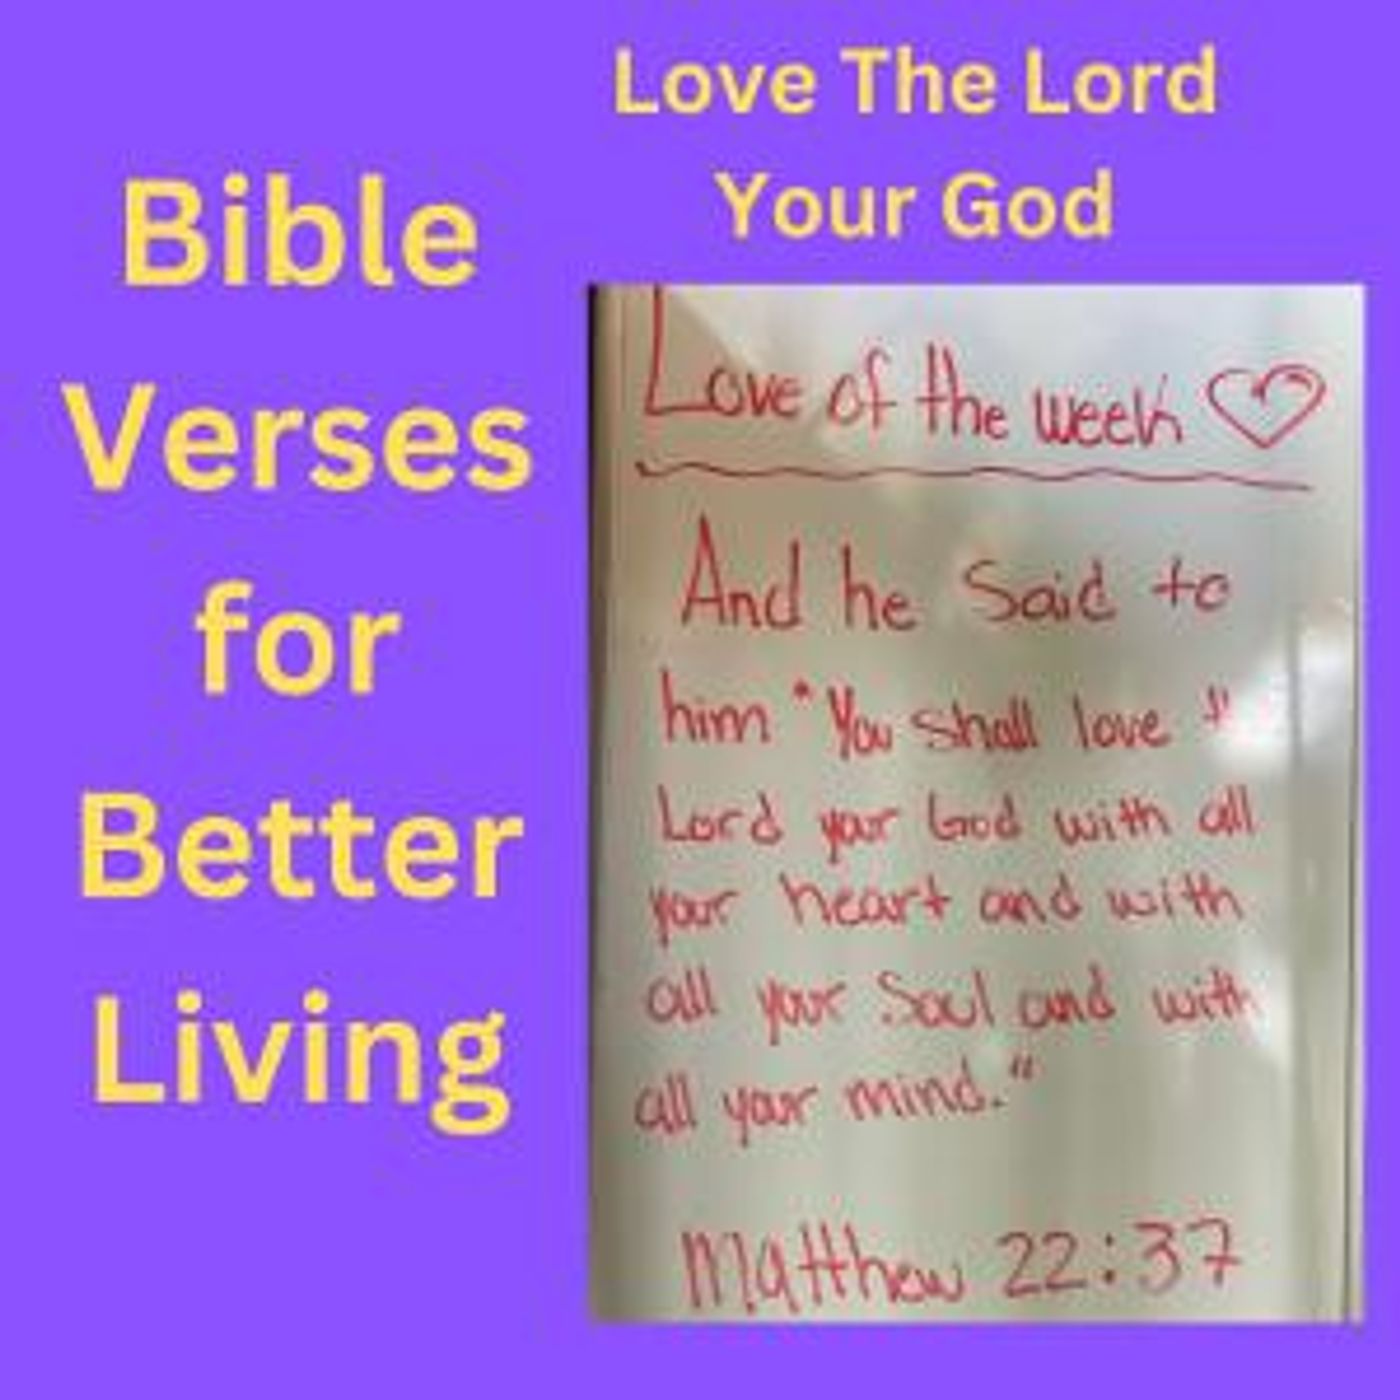 Love The Lord
Your God
Bible
Verses
for
Better
Living
Love of the week
And he Said to
him "You shall love
Lord your God with all
your heart and with
all your Soul and with
all your mind."
Matthew 22:37